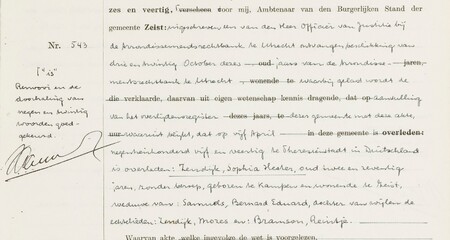 zes en veertig, verscheen voor mij, Ambtenaar van den Burgerlijken Stand der
gemeente Zeist: ingeschreven een van den Heer Officier van Justitie bij
Nr. 543
de Arrondissementsrechtbank te Utrecht ontvangen beschikking van
drie en twintig October dezes oud jaars van de Arrondisse- jaren,
mentsrechtbank te Utrecht wonende te waarbij gelast wordt de
Renvooi en de
doorhaling van
negen en twintig
woorden goed-
gekeurd.
die verklaarde, daarvan uit eigen wetenschap kennis dragende, dat op aanvulling
van het overlijdensregister dezes jaars, te dezer gemeente met deze akte,
uur waaruit blijkt, dat op vijf April in deze gemeente is overleden:
negentienhonderd vijf en veertig te Theresienstadt in Duitschland
is overleden: Zendijk, Sophia Hester, oud twee en zeventig
jaren, zonder beroep, geboren te Kampen en wonende te Zeist,
weduwe van: Samuels, Bernard Eduard, dochter van wijlen de
echtelieden: Zendijk, Mozes en: Bramson, Reintje.
Waarvan akte, welke ingevolge de wet is voorgelezen.